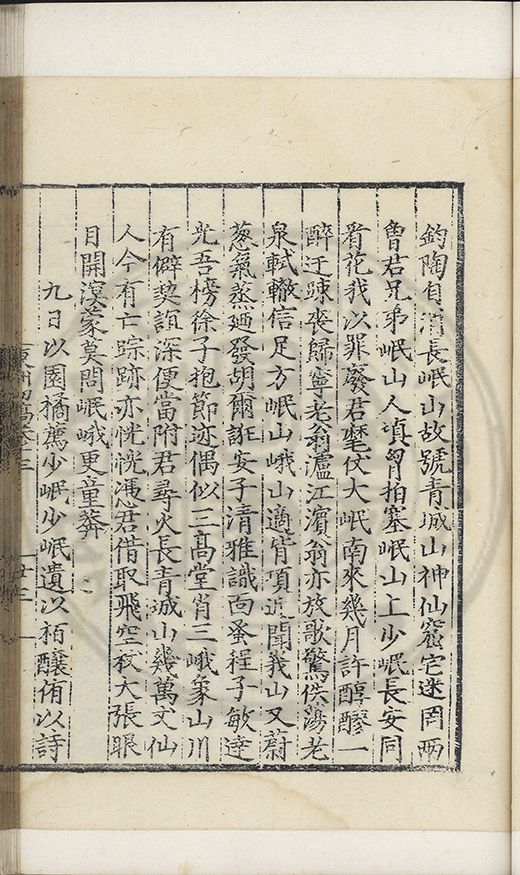 鈞陶自消長岷山故號青城山神仙窟宅迷罔兩
曾君兄弟岷山人填胷拍塞岷山上少岷長安同
看花我以罪廢君麾仗大岷南來幾月許醇醪一
醉迂踈喪歸寧老翁瀘江濱翁亦放歌驚佚蕩老
泉軾轍信足方岷山峨山適背項近聞義山又蔚
葱氣蒸廼發胡爾誑安子清雅識面蚤程子敏達
光吾榜徐子抱節迹偶似三高堂肖三峨象山川
有僻契誼深便當附君尋火長青城山幾萬丈仙
人今有亡踪跡亦恍洸馮君借取飛空衣大張眼
目開溟蒙莫問岷峨更童莽
九日以園橘薦少岷少岷遺以栢釀侑以詩